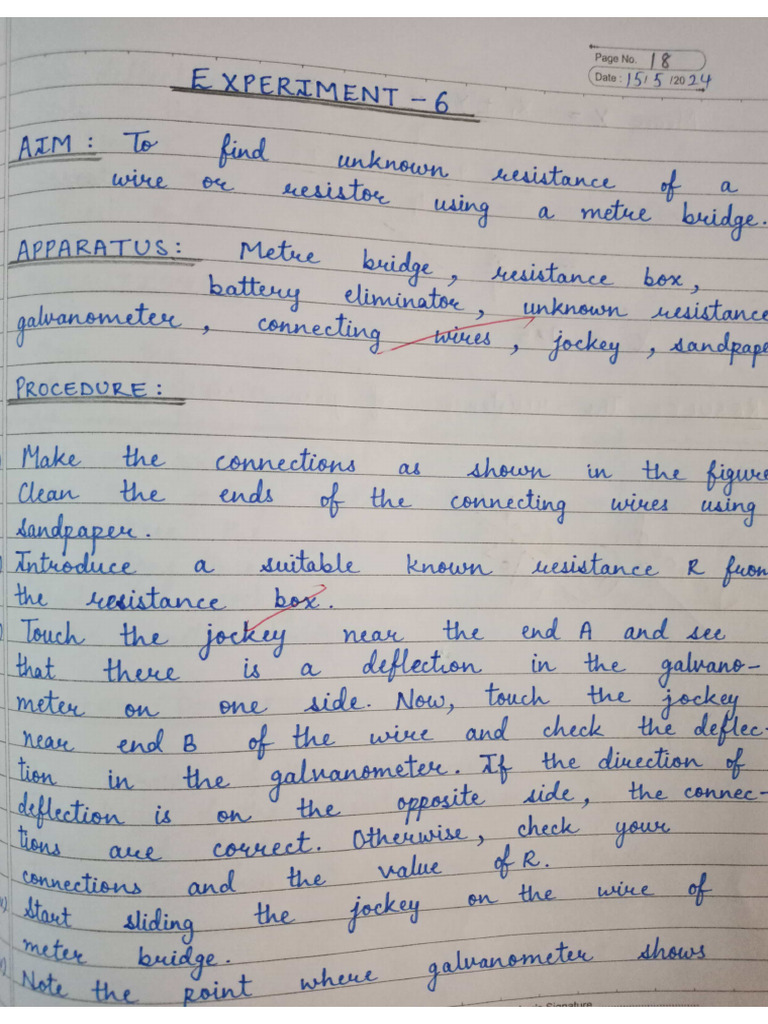 Page No. 18
Date: 15/5/2024
EXPERIMENT - 6
AIM: To find unknown resistance of a
wire or resistor using a metre bridge.
APPARATUS: Metre bridge, resistance box,
battery eliminator, unknown resistance
galvanometer, connecting wires, jockey, sandpape
PROCEDURE:
Make the connections as shown in the figure
Clean the ends of the connecting wires using
sandpaper.
Introduce a suitable known resistance R from
the resistance box.
Touch the jockey near the end A and see
that there is a deflection in the galvano-
meter on one side. Now, touch the jockey
near end B of the wire and check the deflec-
tion in the galvanometer. If the direction of
deflection is on the opposite side, the connec-
tions are correct. Otherwise, check your
connections and the value of R.
Start sliding the jockey on the wire of
meter bridge.
Note the point where galvanometer shows